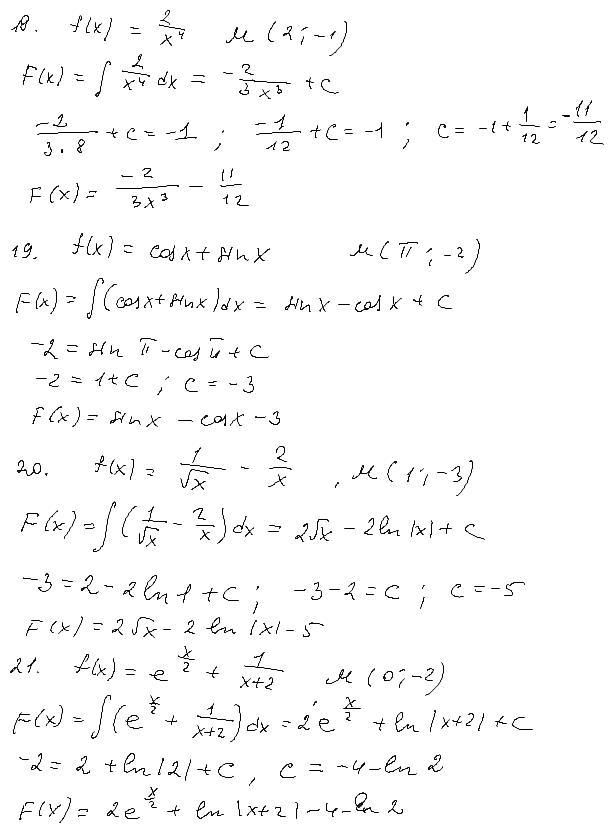 18. f(x) = 2/x⁴ M(2; -1)
F(x) = ∫ 2/x⁴ dx = -2/3x³ + C
-2/3·8 + C = -1 ; -1/12 + C = -1 ; C = -1 + 1/12 = -11/12
F(x) = -2/3x³ - 11/12
19. f(x) = cosx + sinx M(π; -2)
F(x) = ∫(cosx + sinx)dx = sinx - cosx + C
-2 = sin π - cos π + C
-2 = 1 + C ; C = -3
F(x) = sinx - cosx - 3
20. f(x) = 1/√x - 2/x , M(1; -3)
F(x) = ∫(1/√x - 2/x)dx = 2√x - 2ln|x| + C
-3 = 2 - 2ln1 + C ; -3-2 = C ; C = -5
F(x) = 2√x - 2 ln|x| - 5
21. f(x) = e^(x/2) + 1/(x+2) M(0; -2)
F(x) = ∫(e^(x/2) + 1/(x+2))dx = 2e^(x/2) + ln|x+2| + C
-2 = 2 + ln|2| + C , C = -4 - ln2
F(x) = 2e^(x/2) + ln|x+2| - 4 - ln2